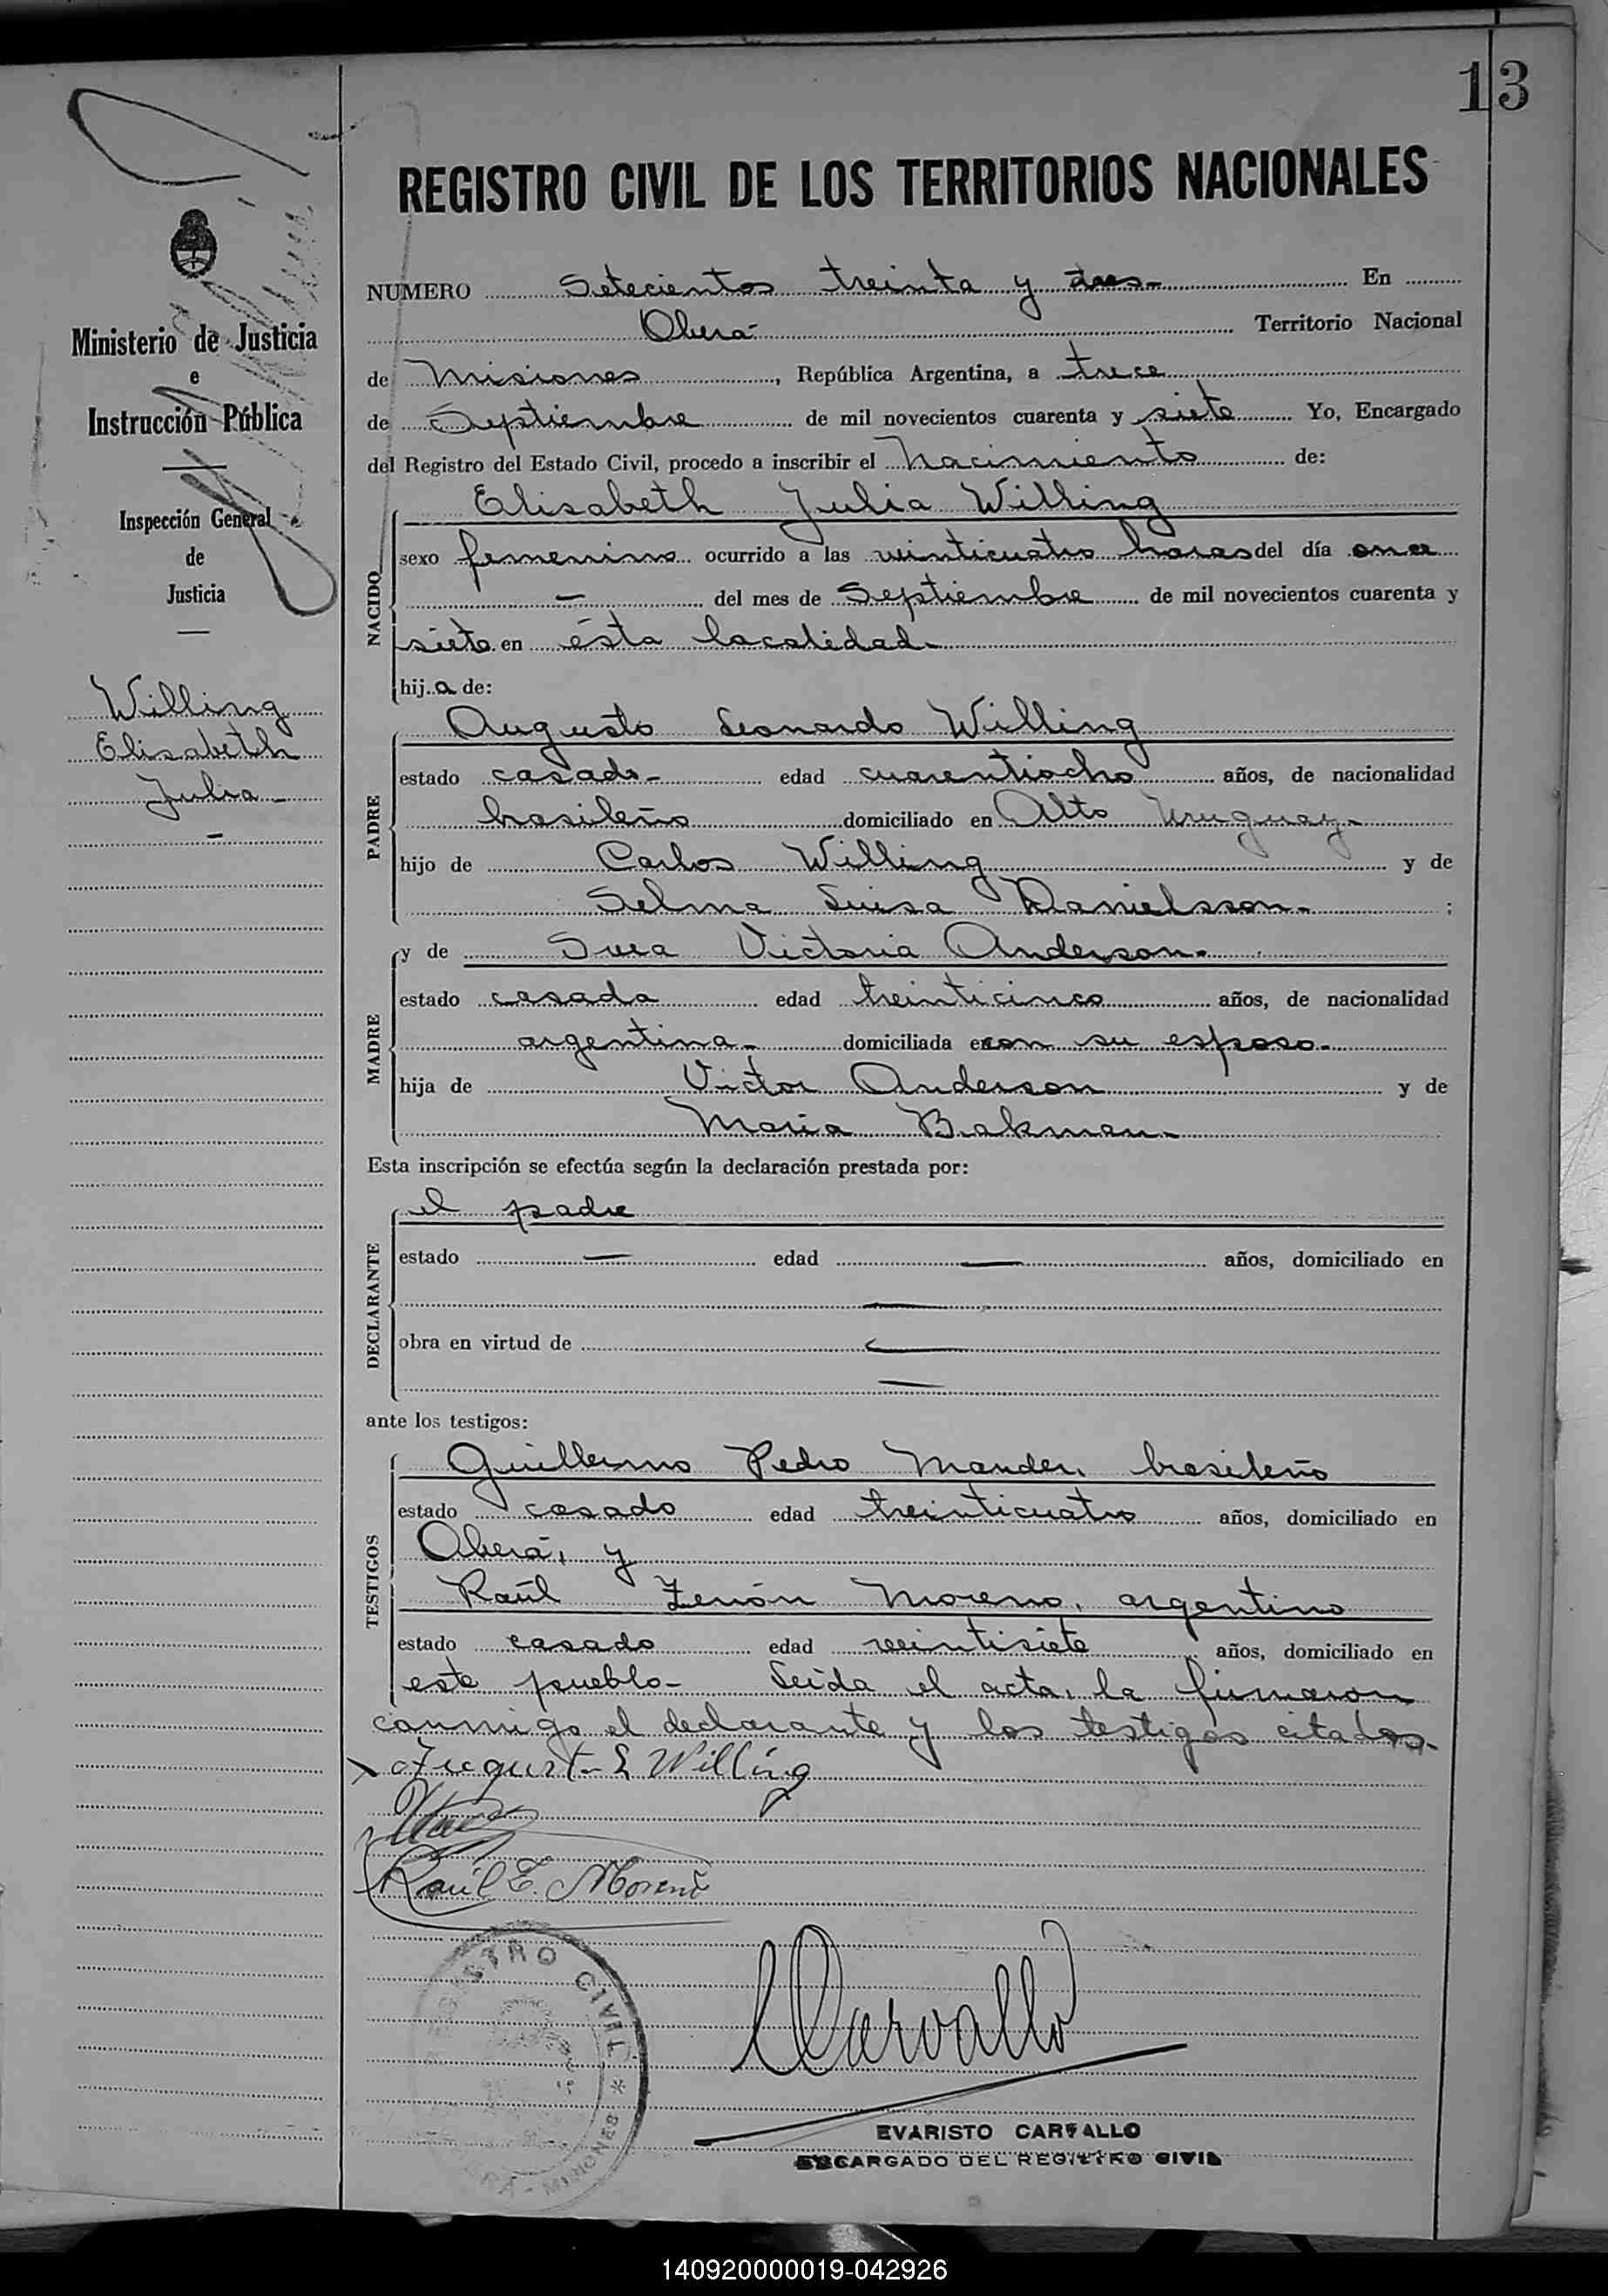 13
REGISTRO CIVIL DE LOS TERRITORIOS NACIONALES
NUMERO Setecientos treinta y tres- En
Oberá- Territorio Nacional
de Misiones, República Argentina, a trece
de Septiembre de mil novecientos cuarenta y siete Yo, Encargado
del Registro del Estado Civil, procedo a inscribir el Nacimiento de:
Elisabeth Julia Willing
NACIDO
sexo femenino ocurrido a las veinticuatro horas del día once
- del mes de Septiembre de mil novecientos cuarenta y
siete en ésta localidad-
hija de:
Augusto Leonardo Willing
PADRE
estado casado- edad cuarentiocho años, de nacionalidad
brasileño domiciliado en Alto Uruguay-
hijo de Carlos Willing y de
Selma Luisa Danielsson- ;
y de Svea Victoria Anderson-
MADRE
estado casada edad treinticinco años, de nacionalidad
argentina- domiciliada con su esposo-
hija de Victor Anderson y de
Maria Bakman-
Esta inscripción se efectúa según la declaración prestada por:
el padre
DECLARANTE
estado — edad — años, domiciliado en
—
obra en virtud de —
—
ante los testigos:
Guillermo Pedro Mander, brasileño
TESTIGOS
estado casado edad treinticuatro años, domiciliado en
Oberá, y
Raúl Zenón Moreno, argentino
estado casado edad veintisiete años, domiciliado en
este pueblo- Leída el acta, la firmaron
conmigo el declarante y los testigos citados-
August L Willing
Raúl Z. Moreno
Carvallo
EVARISTO CARVALLO
ENCARGADO DEL REGISTRO CIVIL
REGISTRO CIVIL
OBERA - MISIONES
Ministerio de Justicia
e
Instrucción Pública
Inspección General
de
Justicia
Willing
Elisabeth
Julia-
-
140920000019-042926